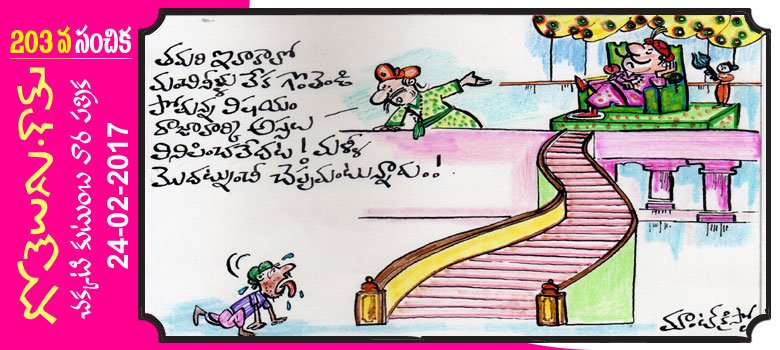 203 వ సంచిక
గోతెలుగు.కామ్
చక్కని కుటుంబ వార పత్రిక
24-02-2017
తమరి ఇలాకాలో
మంచినీళ్లు లేక గొంతెండి
పోతున్న విషయం
రాజావారికి అస్సలు
వినిపించలేదట! మళ్ళీ
మొదట్నుంచీ చెప్పమంటున్నారు..!